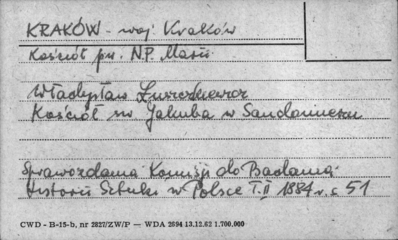 KRAKÓW - woj Kraków
Kościół pw. N.P. Marii
Władysław Łuszczkiewicz
Kościół św Jakuba w Sandomierzu
Sprawozdania Komisji do Badania
Historii Sztuki w Polsce T. II 1884 r. s 51
CWD - B-15-b, nr 2827/ZW/P — WDA 2694 13.12.62 1.700.000